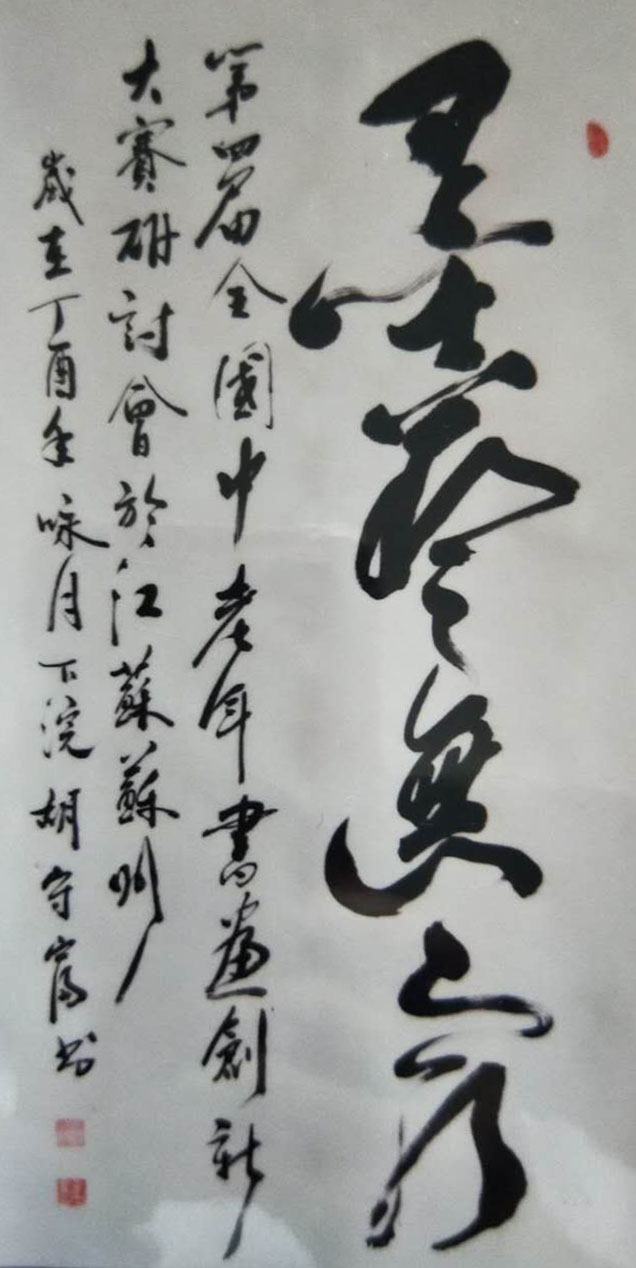 墨藝無窮
第四届全國中老年書畫創新
大賽研討會於江蘇蘇州
歲在丁酉年咏月下浣胡守富书